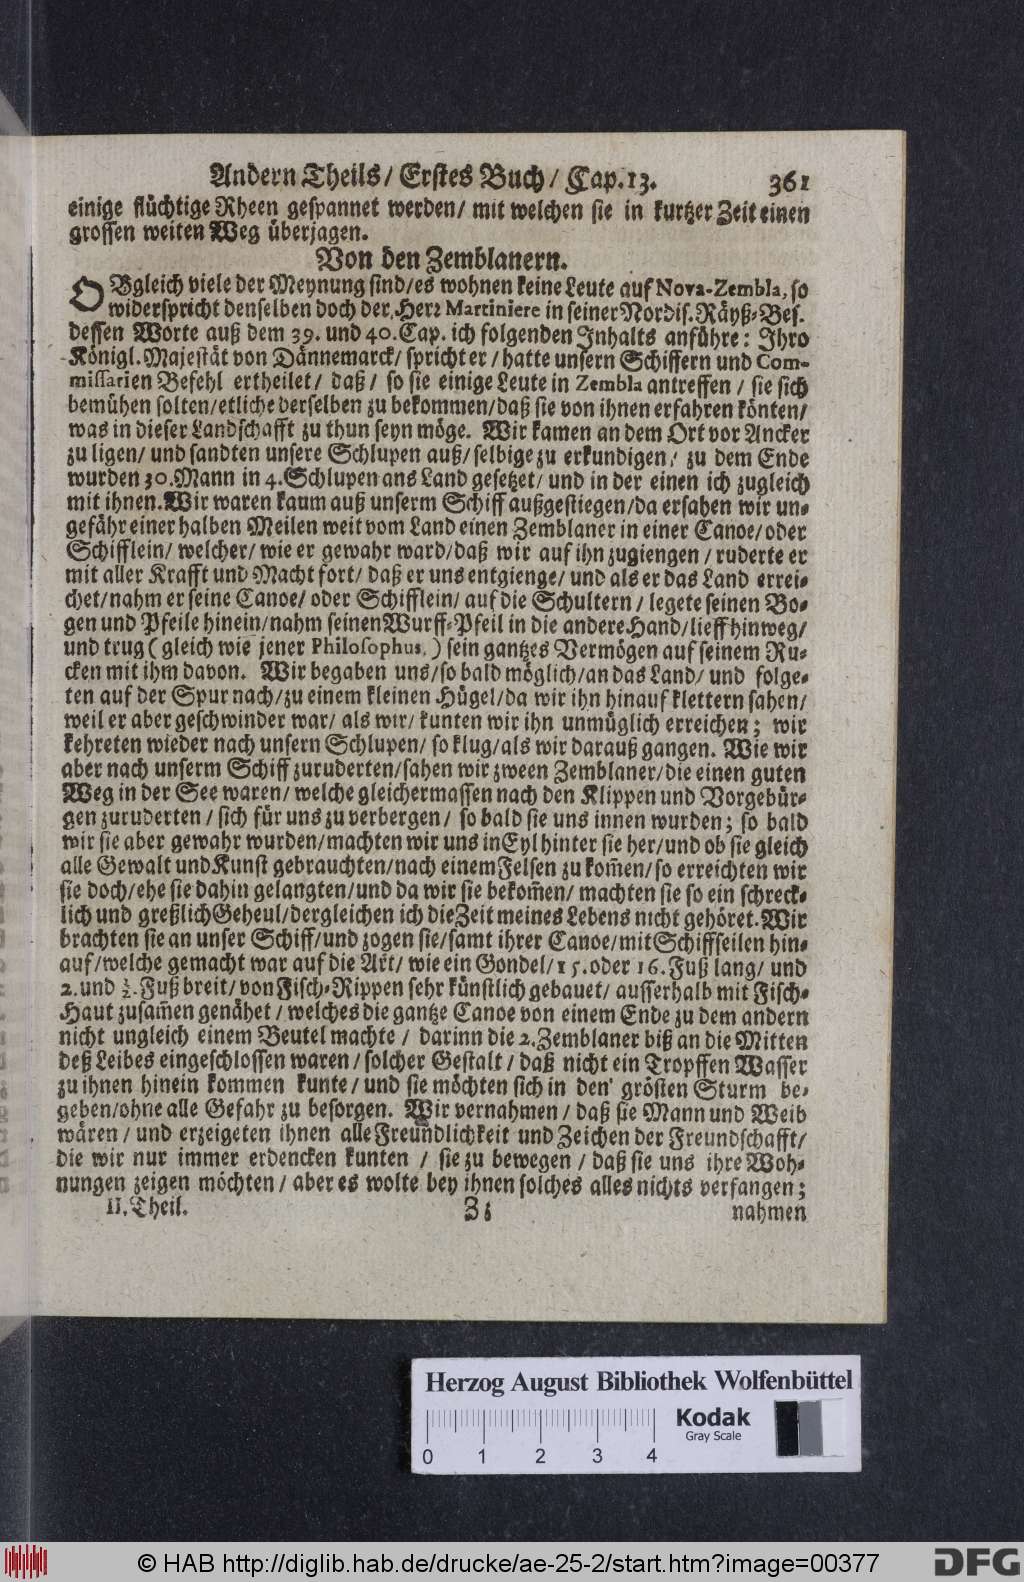 Andern Theils/ Erstes Buch/ Cap. 13. 361
einige flüchtige Rheen gespannet werden/ mit welchen sie in kurtzer Zeit einen
grossen weiten Weg überjagen.
Von den Zemblanern.
OBgleich viele der Meynung sind/ es wohnen keine Leute auf Nova-Zembla, so
widerspricht denselben doch der Herꝛ Martiniere in seiner Nordis. Räyß-Bes.
dessen Worte auß dem 39. und 40. Cap. ich folgenden Inhalts anführe: Ihro
Königl. Majestät von Dännemarck/ spricht er/ hatte unsern Schiffern und Com-
missarien Befehl ertheilet/ daß/ so sie einige Leute in Zembla antreffen/ sie sich
bemühen solten/ etliche derselben zu bekommen/ daß sie von ihnen erfahren könten/
was in dieser Landschafft zu thun seyn möge. Wir kamen an dem Ort vor Ancker
zu ligen/ und sandten unsere Schlupen auß/ selbige zu erkundigen/ zu dem Ende
wurden 30. Mann in 4. Schlupen ans Land gesetzet/ und in der einen ich zugleich
mit ihnen. Wir waren kaum auß unserm Schiff außgestiegen/ da ersahen wir un-
gefähr einer halben Meilen weit vom Land einen Zemblaner in einer Canoe/ oder
Schifflein/ welcher/ wie er gewahr ward/ daß wir auf ihn zugiengen/ ruderte er
mit aller Krafft und Macht fort/ daß er uns entgienge/ und als er das Land errei-
chet/ nahm er seine Canoe/ oder Schifflein/ auf die Schultern/ legete seinen Bo-
gen und Pfeile hinein/ nahm seinen Wurff-Pfeil in die andere Hand/ lieff hinweg/
und trug (gleich wie jener Philosophus,) sein gantzes Vermögen auf seinem Ru-
cken mit ihm davon. Wir begaben uns/ so bald möglich/ an das Land/ und folge-
ten auf der Spur nach/ zu einem kleinen Hügel/ da wir ihn hinauf klettern sahen/
weil er aber geschwinder war/ als wir/ kunten wir ihn unmüglich erreichen; wir
kehreten wieder nach unsern Schlupen/ so klug/ als wir darauß gangen. Wie wir
aber nach unserm Schiff zuruderten/ sahen wir zween Zemblaner/ die einen guten
Weg in der See waren/ welche gleichermassen nach den Klippen und Vorgebür-
gen zuruderten/ sich für uns zu verbergen/ so bald sie uns innen wurden; so bald
wir sie aber gewahr wurden/ machten wir uns in Eyl hinter sie her/ und ob sie gleich
alle Gewalt und Kunst gebrauchten/ nach einem Felsen zu kom̃en/ so erreichten wir
sie doch/ ehe sie dahin gelangten/ und da wir sie bekom̃en/ machten sie so ein schreck-
lich und greßlich Geheul/ dergleichen ich die Zeit meines Lebens nicht gehöret. Wir
brachten sie an unser Schiff/ und zogen sie/ samt ihrer Canoe/ mit Schiffseilen hin-
auf/ welche gemacht war auf die Art/ wie ein Gondel/ 15. oder 16. Fuß lang/ und
2. und ½. Fuß breit/ von Fisch-Rippen sehr künstlich gebauet/ ausserhalb mit Fisch-
Haut zusam̃en genähet/ welches die gantze Canoe von einem Ende zu dem andern
nicht ungleich einem Beutel machte/ darinn die 2. Zemblaner biß an die Mitten
deß Leibes eingeschlossen waren/ solcher Gestalt/ daß nicht ein Tropffen Wasser
zu ihnen hinein kommen kunte/ und sie möchten sich in den grösten Sturm be-
geben/ ohne alle Gefahr zu besorgen. Wir vernahmen/ daß sie Mann und Weib
wären/ und erzeigeten ihnen alle Freundlichkeit und Zeichen der Freundschafft/
die wir nur immer erdencken kunten/ sie zu bewegen/ daß sie uns ihre Woh-
nungen zeigen möchten/ aber es wolte bey ihnen solches alles nichts verfangen;
II. Theil. Z z nahmen
Herzog August Bibliothek Wolfenbüttel
Kodak
Gray Scale
0 1 2 3 4
© HAB http://diglib.hab.de/drucke/ae-25-2/start.htm?image=00377
DFG